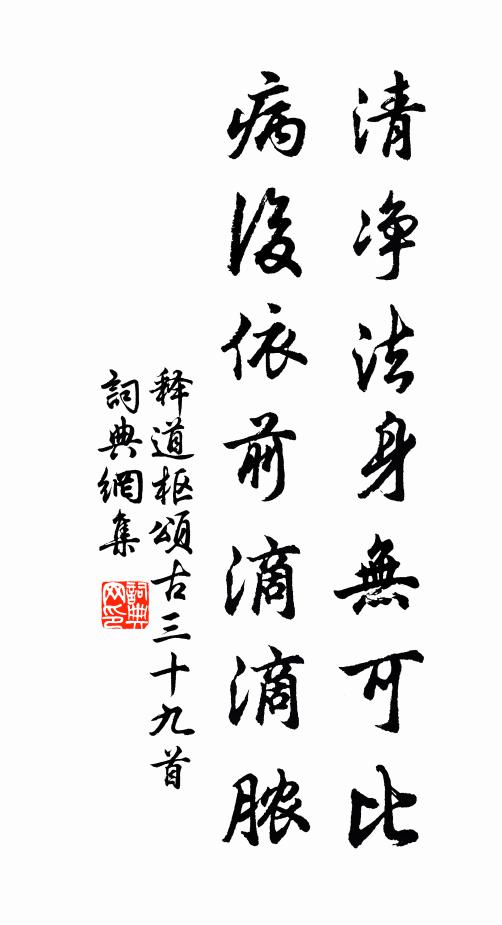 清净法身無可比
病後依前滴滴脓
释道枢頌古三十九首
詞典網集
詞典
网印